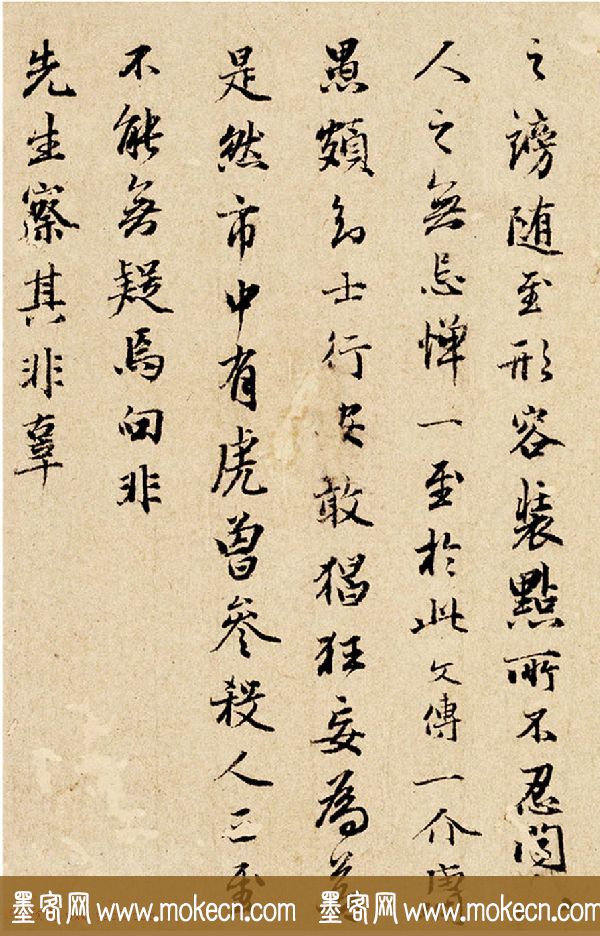 之謗随至形容裝點所不忍聞
人之無忌憚一至於此文傳一介庸
愚頗知士行安敢猖狂妄為若
是然市中有虎曾參殺人三至
不能無疑焉向非
先生察其非辜
墨客网 www.mokecn.com 墨客网 www.mokecn.com